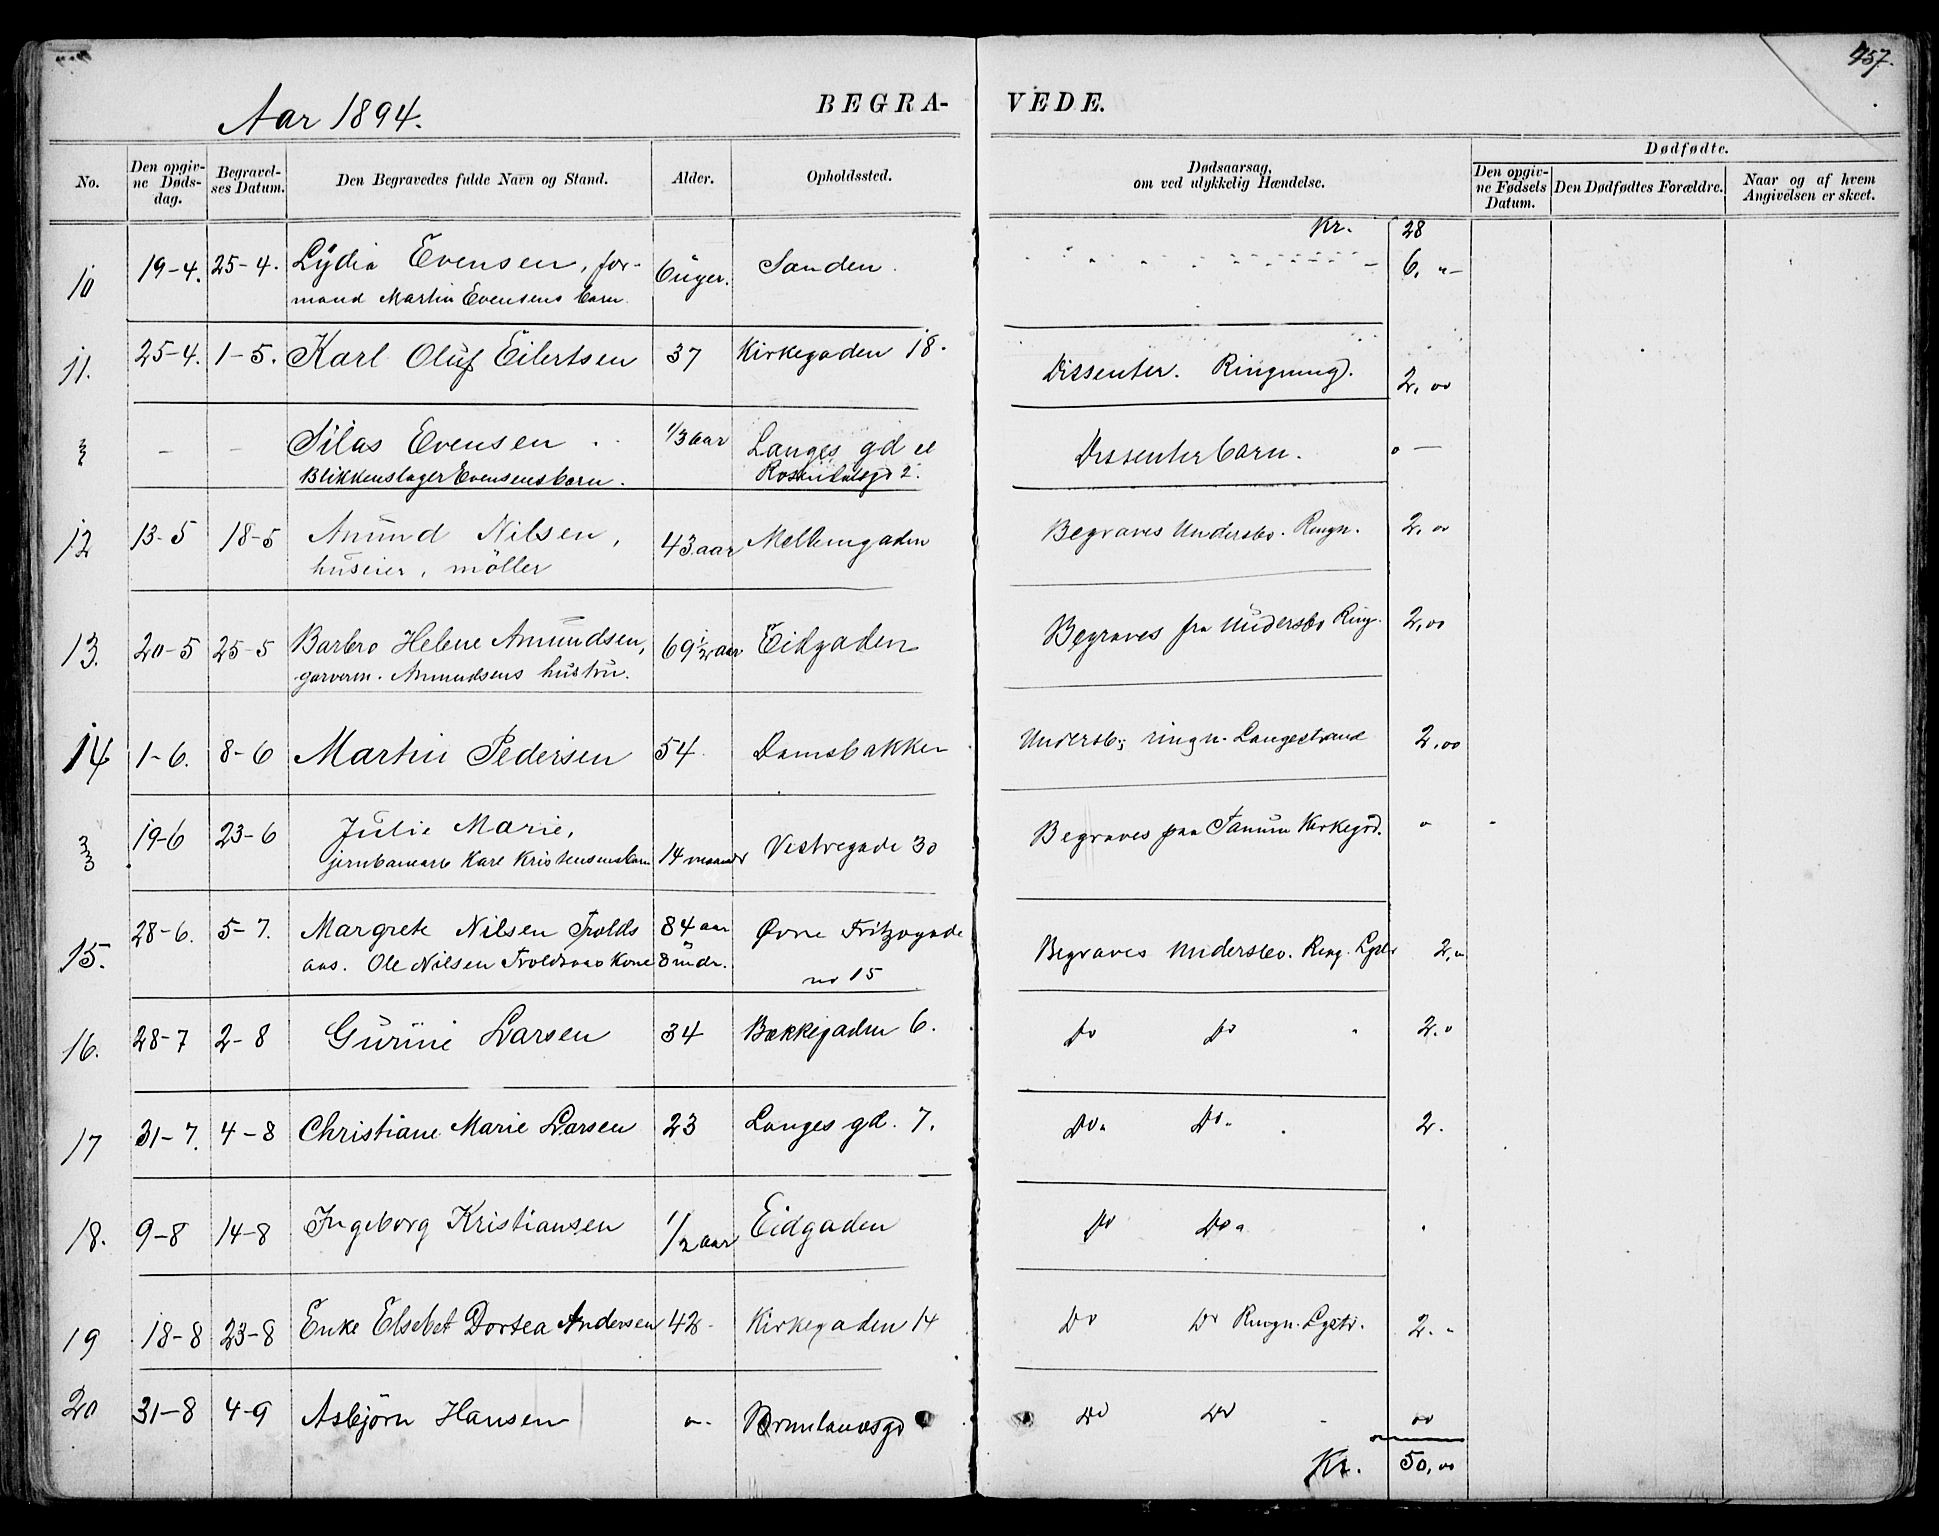 457.
Aar 1894.
BEGRA-
VEDE.
No.
Den opgiv-
ne Døds-
dag.
Begravel-
ses Datum.
Den Begravedes fulde Navn og Stand.
Alder.
Opholdssted.
Dødsaarsag,
om ved ulykkelig Hændelse.
Dødfødte.
Den opgiv-
ne Fødsels
Datum.
Den Dødfødtes Forældre.
Naar og af hvem
Angivelsen er skeet.
Kr. 28
10 19-4. 25-4. Lydia Evensen, for- 6 uger. Sanden. 6, "-
mand Martin Evensens barn.
11. 25-4. 1-5. Karl Oluf Eilertsen 37 Kirkegaden 18. Dissenter. Ringning. 2,00
- - Silas Evensen 1/3 aar Langes gd el Dissenterbarn. 0 -
Blikkenslager Evensens barn. Rosendalsgd 2.
12 13-5 18-5 Amund Nilsen, 43 aar Mellemgaden Begraves Undersbo. Ringn. 2,00
huseier, möller
13. 20-5 25-5 Barbro Helene Amundsen, 69 1/2 aar Eidgaden Begraves fra Undersbo Ring. 2,00
garverm. Amundsens hustru.
14 1-6. 8-6 Martin Pedersen 54. Damsbakken Undersb; ringn. Langestrand 2,00
19-6 23-6 Julie Marie, Vestregade 30 Begraves paa Tanum Kirkegrd. "
Karl Kristensens barn 14 maaneder
15. 28-6. 5-7. Margrete Nilsen Trolds 84 aar Øvre Fritzøgade Begraves Undersbo. Ring. Lyster 2,"
aas. Ole Nilsen Troldsaas Kone 8 mdr. no 15
16. 28-7 2-8 Gurine Larsen 34 Bækkegaden 6. Do Do " 2.0
17 31-7. 4-8 Christiane Marie Larsen 23 Langes gd. 7. Do. Do. 2.
18. 9-8 14-8 Ingeborg Kristiansen 1/2 aar Eidgaden Do Do.
19 18-8 23-8 Enke Elsebet Dortea Andersen 42 Kirkegaden 14 Do Do Ringn. Lystr. 2. "
20 31-8 4-9 Asbjörn Hansen Do Do 00
Kr. 50,00